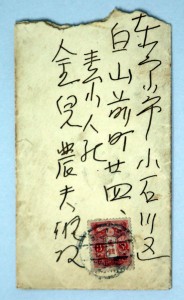 東京市小石川区
白山前町廿四、
素人社
金児農夫雄